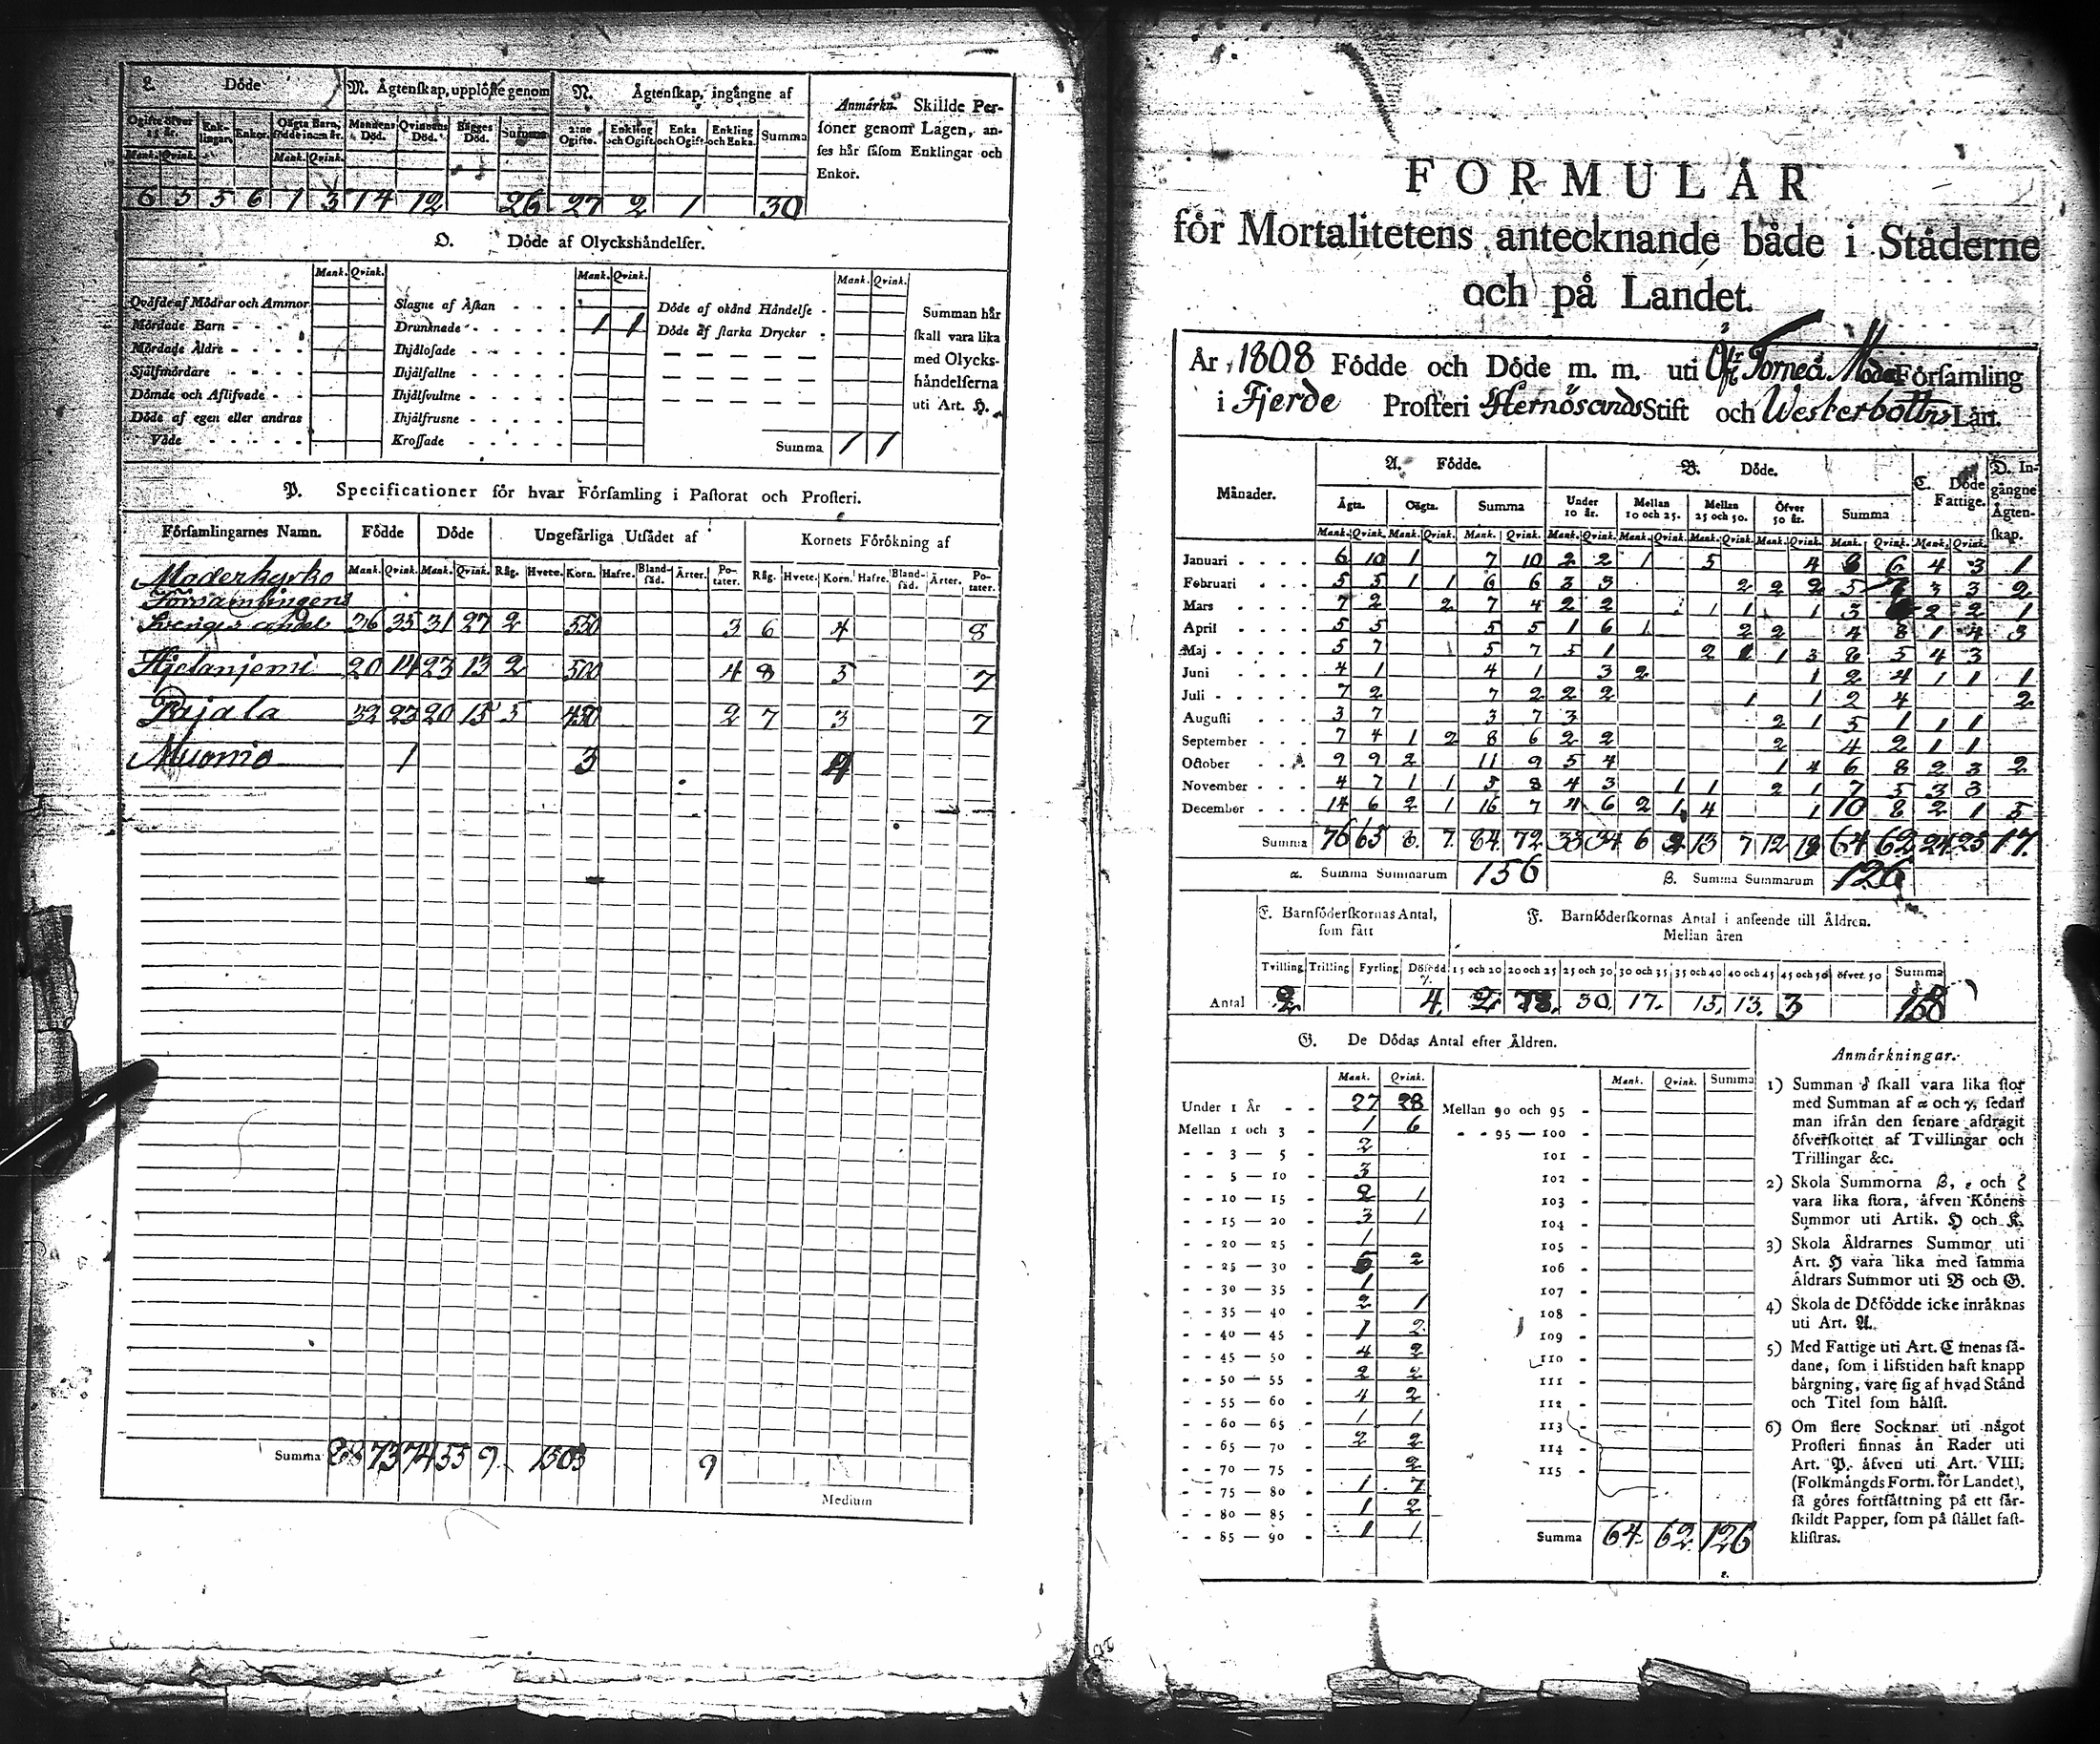 L. Döde
M. Ägtenskap, upplöste genom
N. Ägtenskap, ingångne af
Anmärkn. Skillde Personer
soner genom Lagen, an-
ses här såsom Enklingar och
Enkor.
Ogifte öfver 15 år. Enklingar. Enkor. Oägta Barn, födde inom år. Mannens Död. Qvinnans Död. Bägges Död. Summa 2:ne Ogifte. Enkling och Ogift Enka och Ogift Enkling och Enka. Summa
Mank. Qvink. Mank. Qvink.
6 5 5 6 1 3 14 12 26 27 2 1 30
O. Döde af Olyckshändelser.
Mank. Qvink. Mank. Qvink. Mank. Qvink.
Qväfde af Mödrar och Ammor Slagne af Åskan Döde af okänd Händelse Summan här
Mördade Barn Drunknade 1 1 Döde af starka Drycker skall vara lika
Mördade Äldre Ihjälosade med Olycks-
Sjelfmördare Ihjälfallne händelserna
Dömde och Aflifvade Ihjälsvultne uti Art. H.
Döde af egen eller andras Ihjälfrusne
Våde Krossade Summa 1 1
P. Specificationer för hvar Församling i Pastorat och Prosteri.
Församlingarnes Namn. Födde Döde Ungefärliga Utsädet af Kornets Förökning af
Mank. Qvink. Mank. Qvink. Råg. Hvete. Korn. Hafre. Bland-säd. Ärter. Po-tater. Råg. Hvete. Korn. Hafre. Bland-säd. Ärter. Po-tater.
Moderkyrko
Församlingens
Sveriges andel 36 35 31 27 2 550 3 6 4 8
Hjetanjemi 20 14 23 13 2 500 4 8 5 7
Pajala 32 23 20 15 5 450 2 7 3 7
Muonio 1 3 4
Summa 88 73 74 55 9 1503 9
Medium
FORMULÄR
för Mortalitetens antecknande både i Städerne
och på Landet.
År 1808 Födde och Döde m. m. uti Öfr Torneå Moder Församling
i Fjerde Prosteri Hernösands Stift och Westerbottns Län.
Månader. A. Födde. B. Döde. C. Döde Fattige. D. Ingångne Ägtenskap.
Ägta. Oägta. Summa Under 10 år. Mellan 10 och 25. Mellan 25 och 50. Öfver 50 år. Summa
Mank. Qvink. Mank. Qvink. Mank. Qvink. Mank. Qvink. Mank. Qvink. Mank. Qvink. Mank. Qvink. Mank. Qvink. Mank. Qvink.
Januari 6 10 1 7 10 2 2 1 5 4 8 6 4 3 1
Februari 5 5 1 1 6 6 3 3 2 2 2 5 7 3 3 2
Mars 7 2 2 7 4 2 2 1 1 1 3 2 2 1
April 5 5 5 5 1 6 1 2 2 4 8 1 4 3
Maj 5 7 5 7 5 1 2 1 1 3 8 5 4 3
Juni 4 1 4 1 3 2 1 2 4 1 1 1
Juli 7 2 7 2 2 2 1 1 2 4 2
Augusti 3 7 3 7 3 2 1 5 1 1 1
September 7 4 1 2 8 6 2 2 2 4 2 1 1
October 9 9 2 11 9 5 4 1 4 6 8 2 3 2
November 4 7 1 1 5 8 4 3 1 1 2 1 7 5 3 3
December 14 6 2 1 16 7 4 6 2 1 4 1 10 8 2 1 5
Summa 76 65 8. 7. 84. 72 33 34 6 2 13 7 12 19 64 62 24 25 17.
α. Summa Summarum 156 β. Summa Summarum 126
E. Barnföderskornas Antal, som fått
F. Barnföderskornas Antal i anseende till Åldren.
Mellan åren
Tvilling Trilling Fyrling Dödfödd γ. 15 och 20 20 och 25 25 och 30 30 och 35 35 och 40 40 och 45 45 och 50 öfver 50 Summa
Antal 2 4. 2. 78. 30. 17. 15. 13. 3 158
G. De Dödas Antal efter Åldren.
Mank. Qvink. Mank. Qvink. Summa
Under 1 År 27 28 Mellan 90 och 95
Mellan 1 och 3 1 6 95 — 100
3 — 5 2 101
5 — 10 3 102
10 — 15 2 1 103
15 — 20 3 1 104
20 — 25 1 105
25 — 30 5 2 106
30 — 35 1 107
35 — 40 2 1 108
40 — 45 1 2 109
45 — 50 4 2 110
50 — 55 2 2 111
55 — 60 4 2 112
60 — 65 1 1 113
65 — 70 2 2 114
70 — 75 2 115
75 — 80 1 7
80 — 85 1 2
85 — 90 1 1 Summa 64. 62. 126
Anmärkningar.
1) Summan δ skall vara lika stor
med Summan af α och γ, sedan
man ifrån den senare afdragit
öfverskottet af Tvillingar och
Trillingar &c.
2) Skola Summorna β, ε och ζ
vara lika stora, äfven Könens
Summor uti Artik. H och K.
3) Skola Åldrarnes Summor uti
Art. H vara lika med samma
Åldrars Summor uti B och G.
4) Skola de Döfödde icke inräknas
uti Art. A.
5) Med Fattige uti Art. C menas så-
dane, som i lifstiden haft knapp
bärgning, vare sig af hvad Stånd
och Titel som hälst.
6) Om flere Socknar uti något
Prosteri finnas än Rader uti
Art. P. äfven uti Art. VIII.
(Folkmängds Form. för Landet),
så göres fortsättning på ett sär-
skildt Papper, som på stället fast-
klistras.